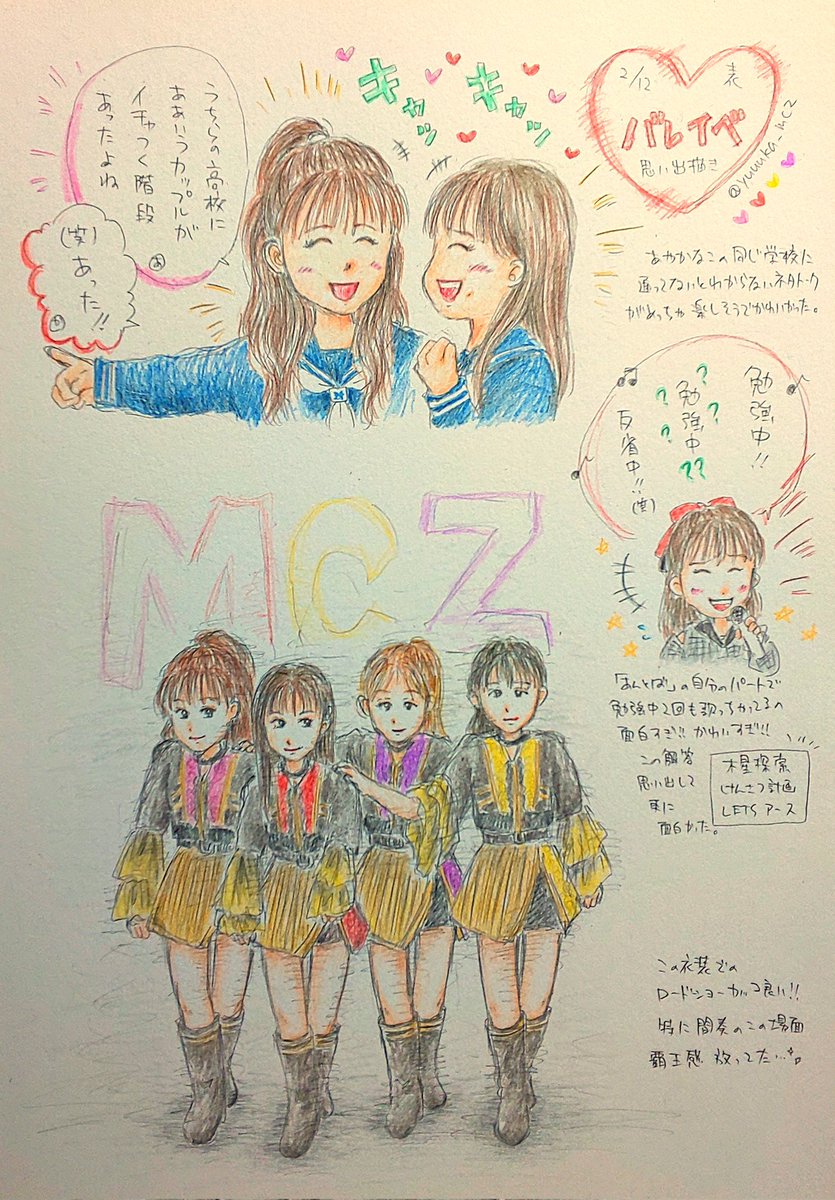 うちらの高校に
ああいうカップルが
イチャつく階段
あったよね
あ
(笑)
あった!!
か
キャッ
キャッ
2/12
表
バレイベ
思い出描き
@yuuuka_mcz
あやかなこの同じ学校に
通ってないとわからないネタトーク
がめっちゃ楽しそうでかわいかった。
勉強中!!
?
勉強中
??
反省中!!(笑)
MCZ
「あんとば」の自分のパートで
勉強中2回も歌っちゃってるの
面白すぎ!!かわいすぎ!!
この解答
思い出して
更に
面白かった。
木星探索
けんさつ計画
LETS アース
この衣装での
ロードショーカッコ良い!!
特に間奏のこの場面
覇王感 放ってた…
M